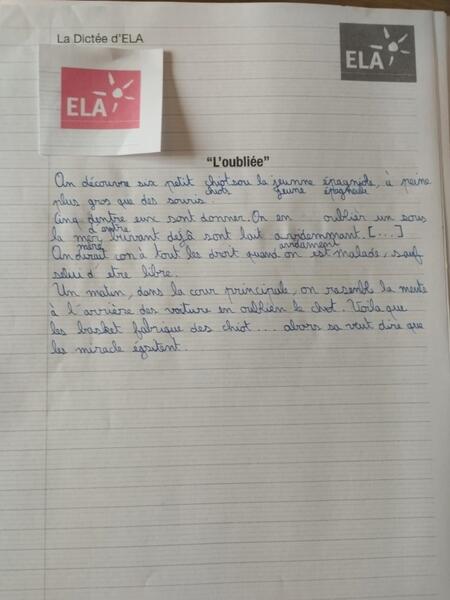 La Dictée d'ELA
ELA
ELA
"L'oubliée"
On découvre six petit chiotsou la jeunne épagniole, à peine
chiots jeuvre épagneule
plus gros que des souris.
Cinq dentre eux sont donner. On en oublier un sous
d'entre
la mer buvant dejâ sont lait ardemmant. [...]
mère ardament
On dirait con a tout les droit quand on est malade, sauf
selui d etre libre.
Un matin, dans la cour principale, on resembl la meute
à l'arrière des voiture en oublien le chot. Voila que
les basket fabrique des chiot... alors sa veut dire que
les miracle égsitent.